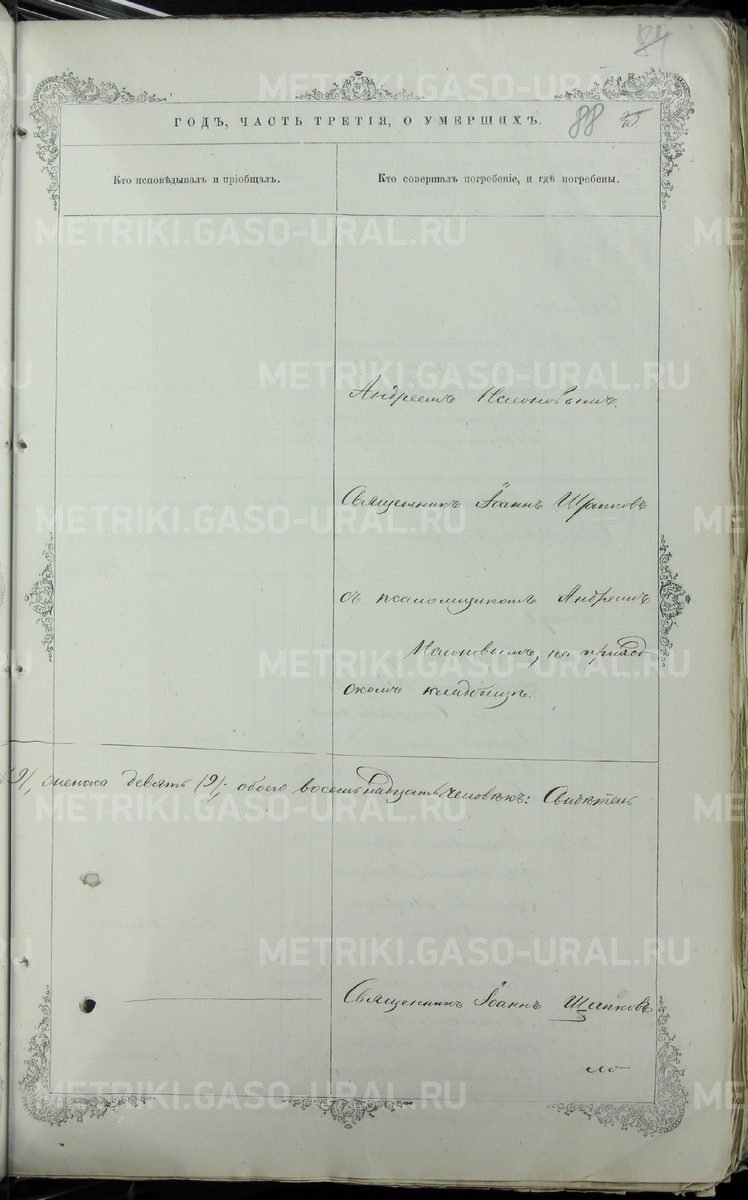 84
ГОДЪ, ЧАСТЬ ТРЕТІЯ, О УМЕРШИХЪ.
88
Кто исповѣдывалъ и пріобщалъ.
Кто совершалъ погребеніе, и гдѣ погребены.
Андреемъ
Священникъ Іоаннъ
съ псаломщикомъ Андреемъ
на приход
скомъ кладбищѣ.
9/, женска девять /9/, обоего восемьнадцать человѣкъ: Свидѣтель
Священникъ Іоаннъ Щипковъ
METRIKI.GASO-URAL.RU